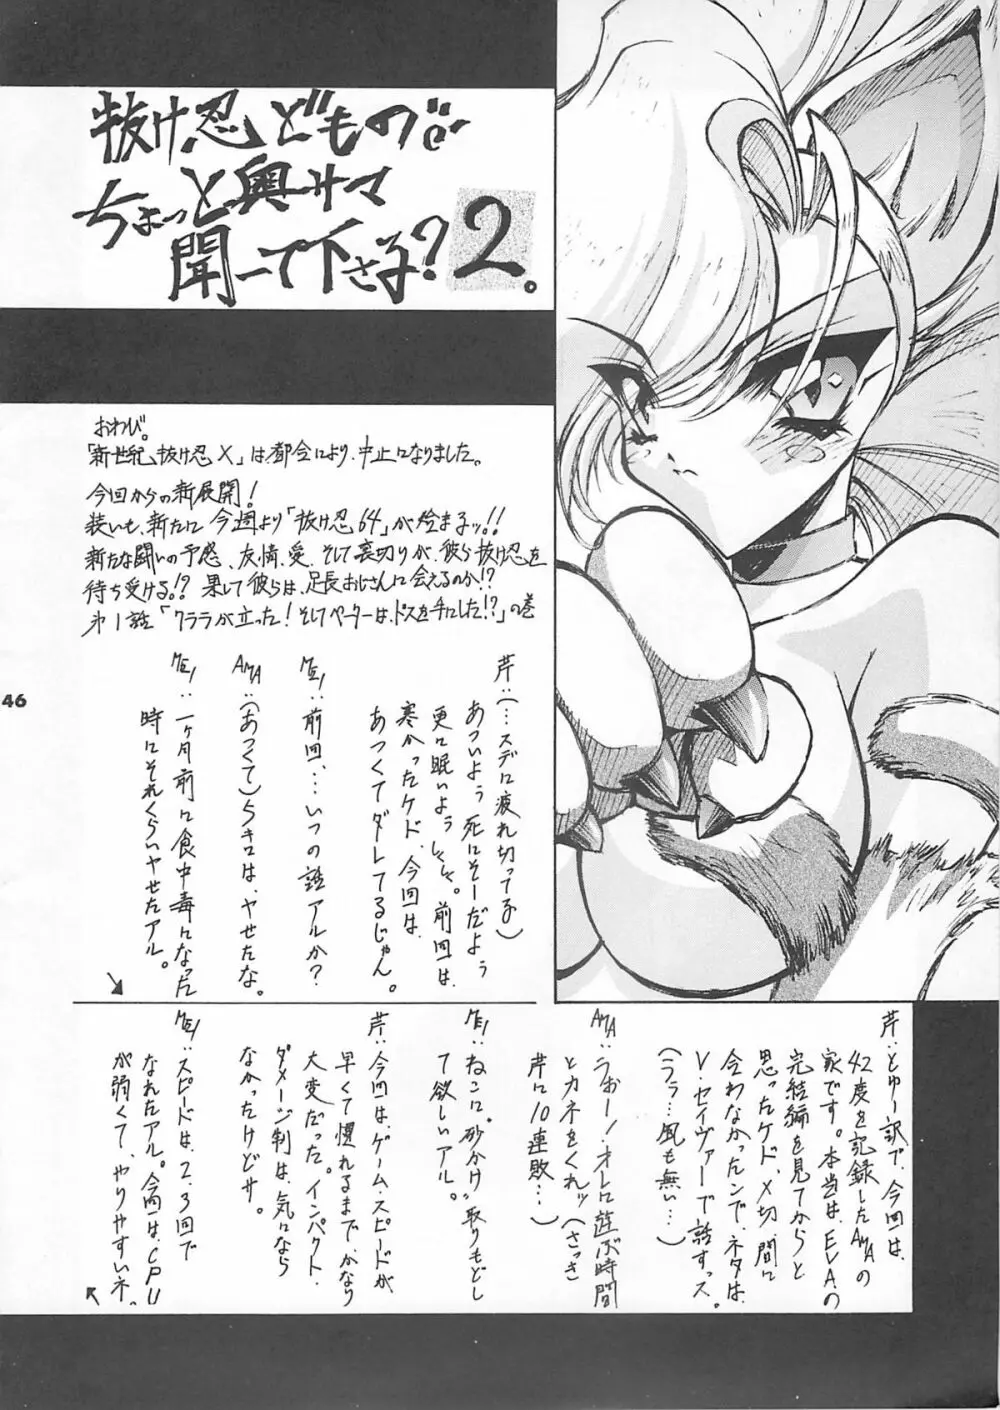 抜け忍どもの
ちょっと奥サマ
聞ーて下さる？2。
おわび。
「新世紀抜け忍X」は都合により、中止になりました。
今回からの新展開！
装いも、新たに今週より「抜け忍64」が始まるッ!!
新たな闘いの予感、友情、愛、そして裏切りが、彼ら抜け忍を
待ち受ける!? 果して彼らは、足長おじさんに会えるのか!?
第1話「クララが立った！そしてペーターは、ドスを手にした!?」の巻
芹：(…スデに疲れ切ってる)
あついよう 死にそーだよう
更に眠いようしくしく。前回は、
寒かったケド、今回は、
あつくてダレてるじゃん。
MEI：前回、…いつの話アルか？
AMA：(あつくて)らきロは、ヤせたな。
MEI：一ヶ月前に食中毒になった
時にそれくらいヤせたアル。
芹：とゆー訳で、今回は、
42度を記録したAMAの
家です。本当は、EVAの
完結編を見てからと
思ったケド、〆切、間に
合わなかったンで、ネタは、
V・セイヴァーで話すっス。
(うう…風も無い…)
AMA：うおー！オレに遊ぶ時間
とカネをくれッ(さっき
芹に10連敗…)
MEI：ねこに"砂かけ"取りもどし
て欲しいアル。
芹：今回はゲーム・スピードが
早くて慣れるまで、かなり
大変だった。インパクト、
ダメージ判は、気になら
なかったけどサ。
MEI：スピードは、2、3回で
なれたアル。今回は、CPU
が弱くて、やりやすいネ。
46